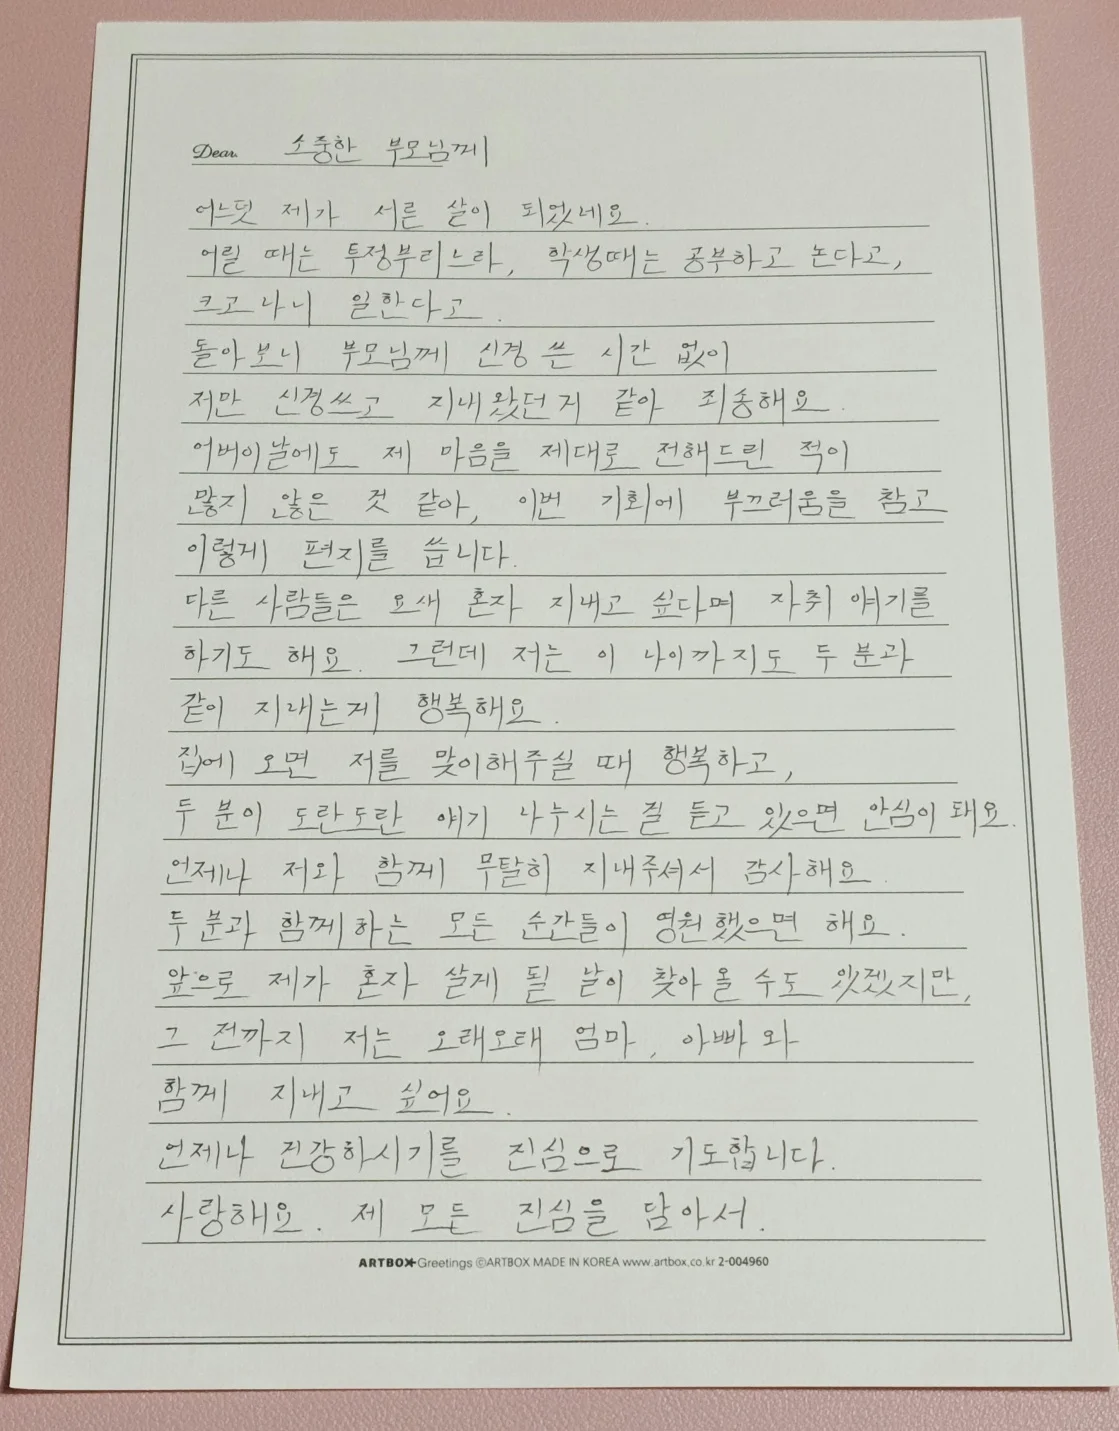 Dear. 소중한 부모님께
어느덧 제가 서른 살이 되었네요.
어릴 때는 투정부리느라, 학생때는 공부하고 논다고,
크고나니 일한다고.
돌아보니 부모님께 신경 쓴 시간 없이
저만 신경쓰고 지내왔던거 같아 죄송해요.
어버이날에도 제 마음을 제대로 전해드린 적이
많지 않은 것 같아, 이번 기회에 부끄러움을 참고
이렇게 편지를 씁니다.
다른 사람들은 요새 혼자 지내고 싶다며 자취 얘기를
하기도 해요. 그런데 저는 이 나이까지도 두 분과
같이 지내는게 행복해요.
집에 오면 저를 맞이해주실 때 행복하고,
두 분이 도란도란 얘기 나누시는 걸 듣고 있으면 안심이 돼요.
언제나 저와 함께 무탈히 지내주셔서 감사해요.
두 분과 함께하는 모든 순간들이 영원했으면 해요.
앞으로 제가 혼자 살게 될 날이 찾아올 수도 있겠지만,
그 전까지 저는 오래오래 엄마, 아빠와
함께 지내고 싶어요.
언제나 건강하시기를 진심으로 기도합니다.
사랑해요. 제 모든 진심을 담아서.
ARTBOX Greetings ⓒARTBOX MADE IN KOREA www.artbox.co.kr 2-004960